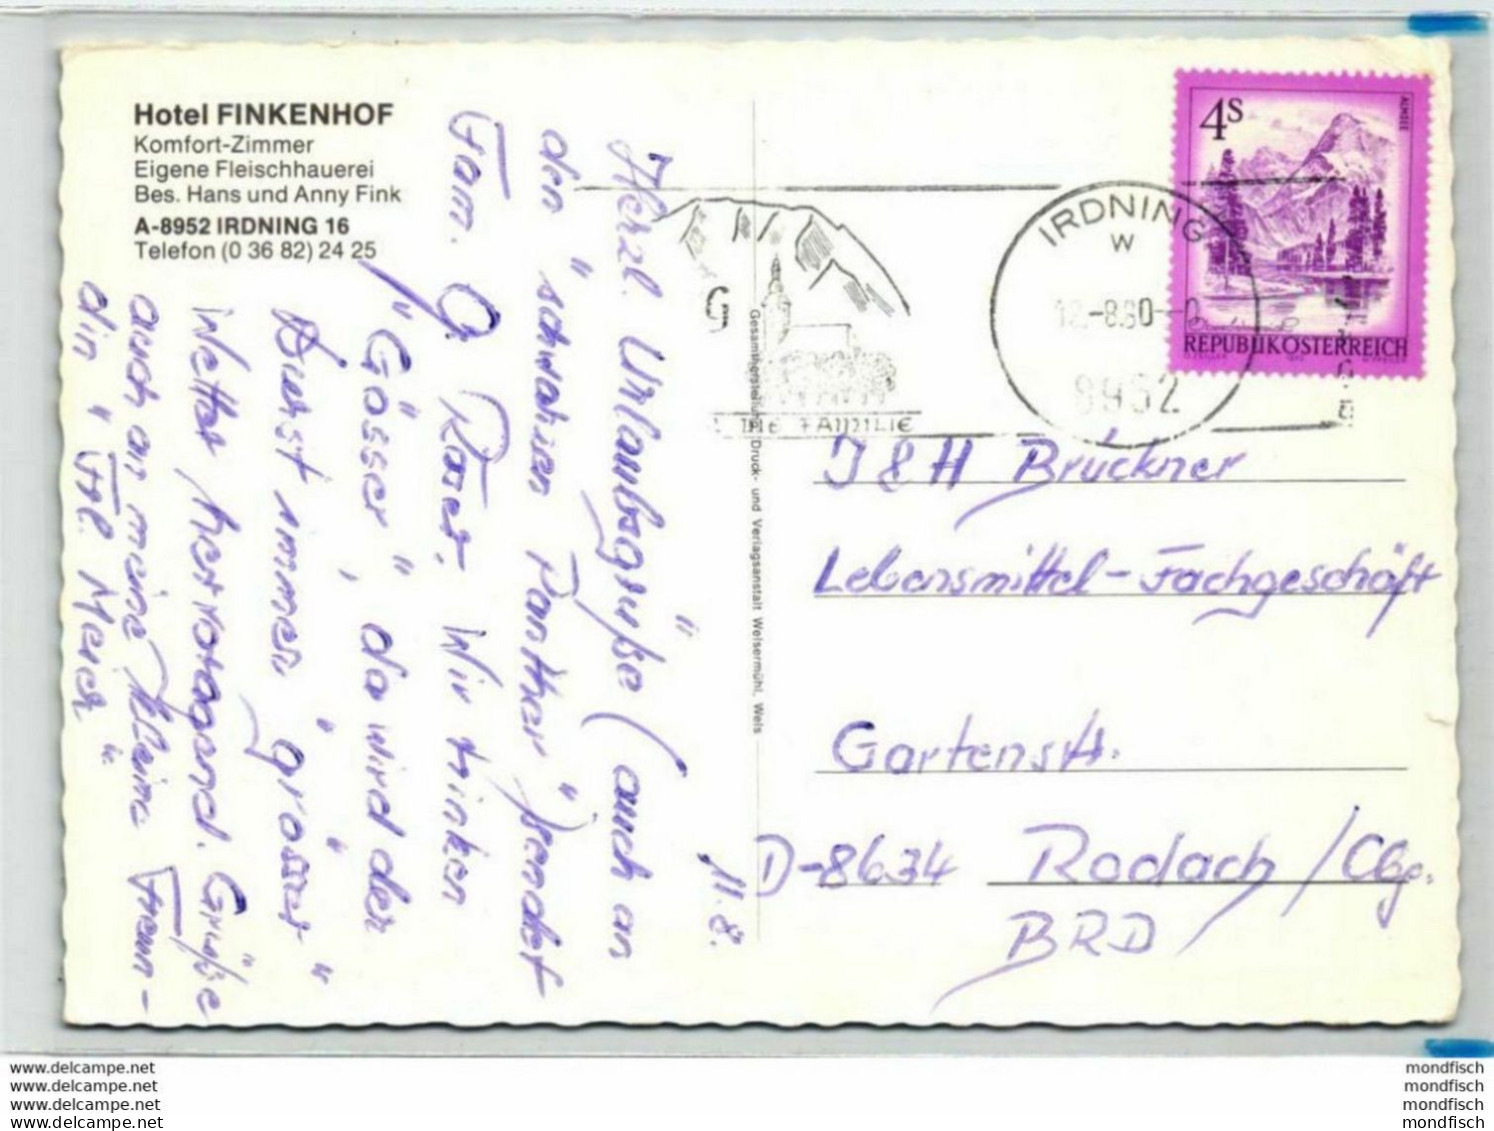 Hotel FINKENHOF
Komfort-Zimmer
Eigene Fleischhauerei
Bes. Hans und Anny Fink
A-8952 IRDNING 16
Telefon (0 36 82) 24 25
11.8.
Herzl. Urlaubsgrüße (auch an
den "schwarzen Panther") sendet
Fam. G. Roser. Wir trinken
"Gösser", da wird der
Durst immer "grösser"
Wetter hervorragend. Grüße
auch an meine kleine Freun-
din "Frl. Meier"
Gesamtherstellung: Druck- und Verlagsanstalt Welsermühl, Wels
4S
ALMSEE
REPUBLIK ÖSTERREICH
IRDNING
W
12.-8.80
8952
G
FAMILIE
J & H Brückner
Lebensmittel-Fachgeschäft
Gartenstr.
D-8634 Rodach / Cbg.
BRD
www.delcampe.net
www.delcampe.net
www.delcampe.net
www.delcampe.net
mondfisch
mondfisch
mondfisch
mondfisch